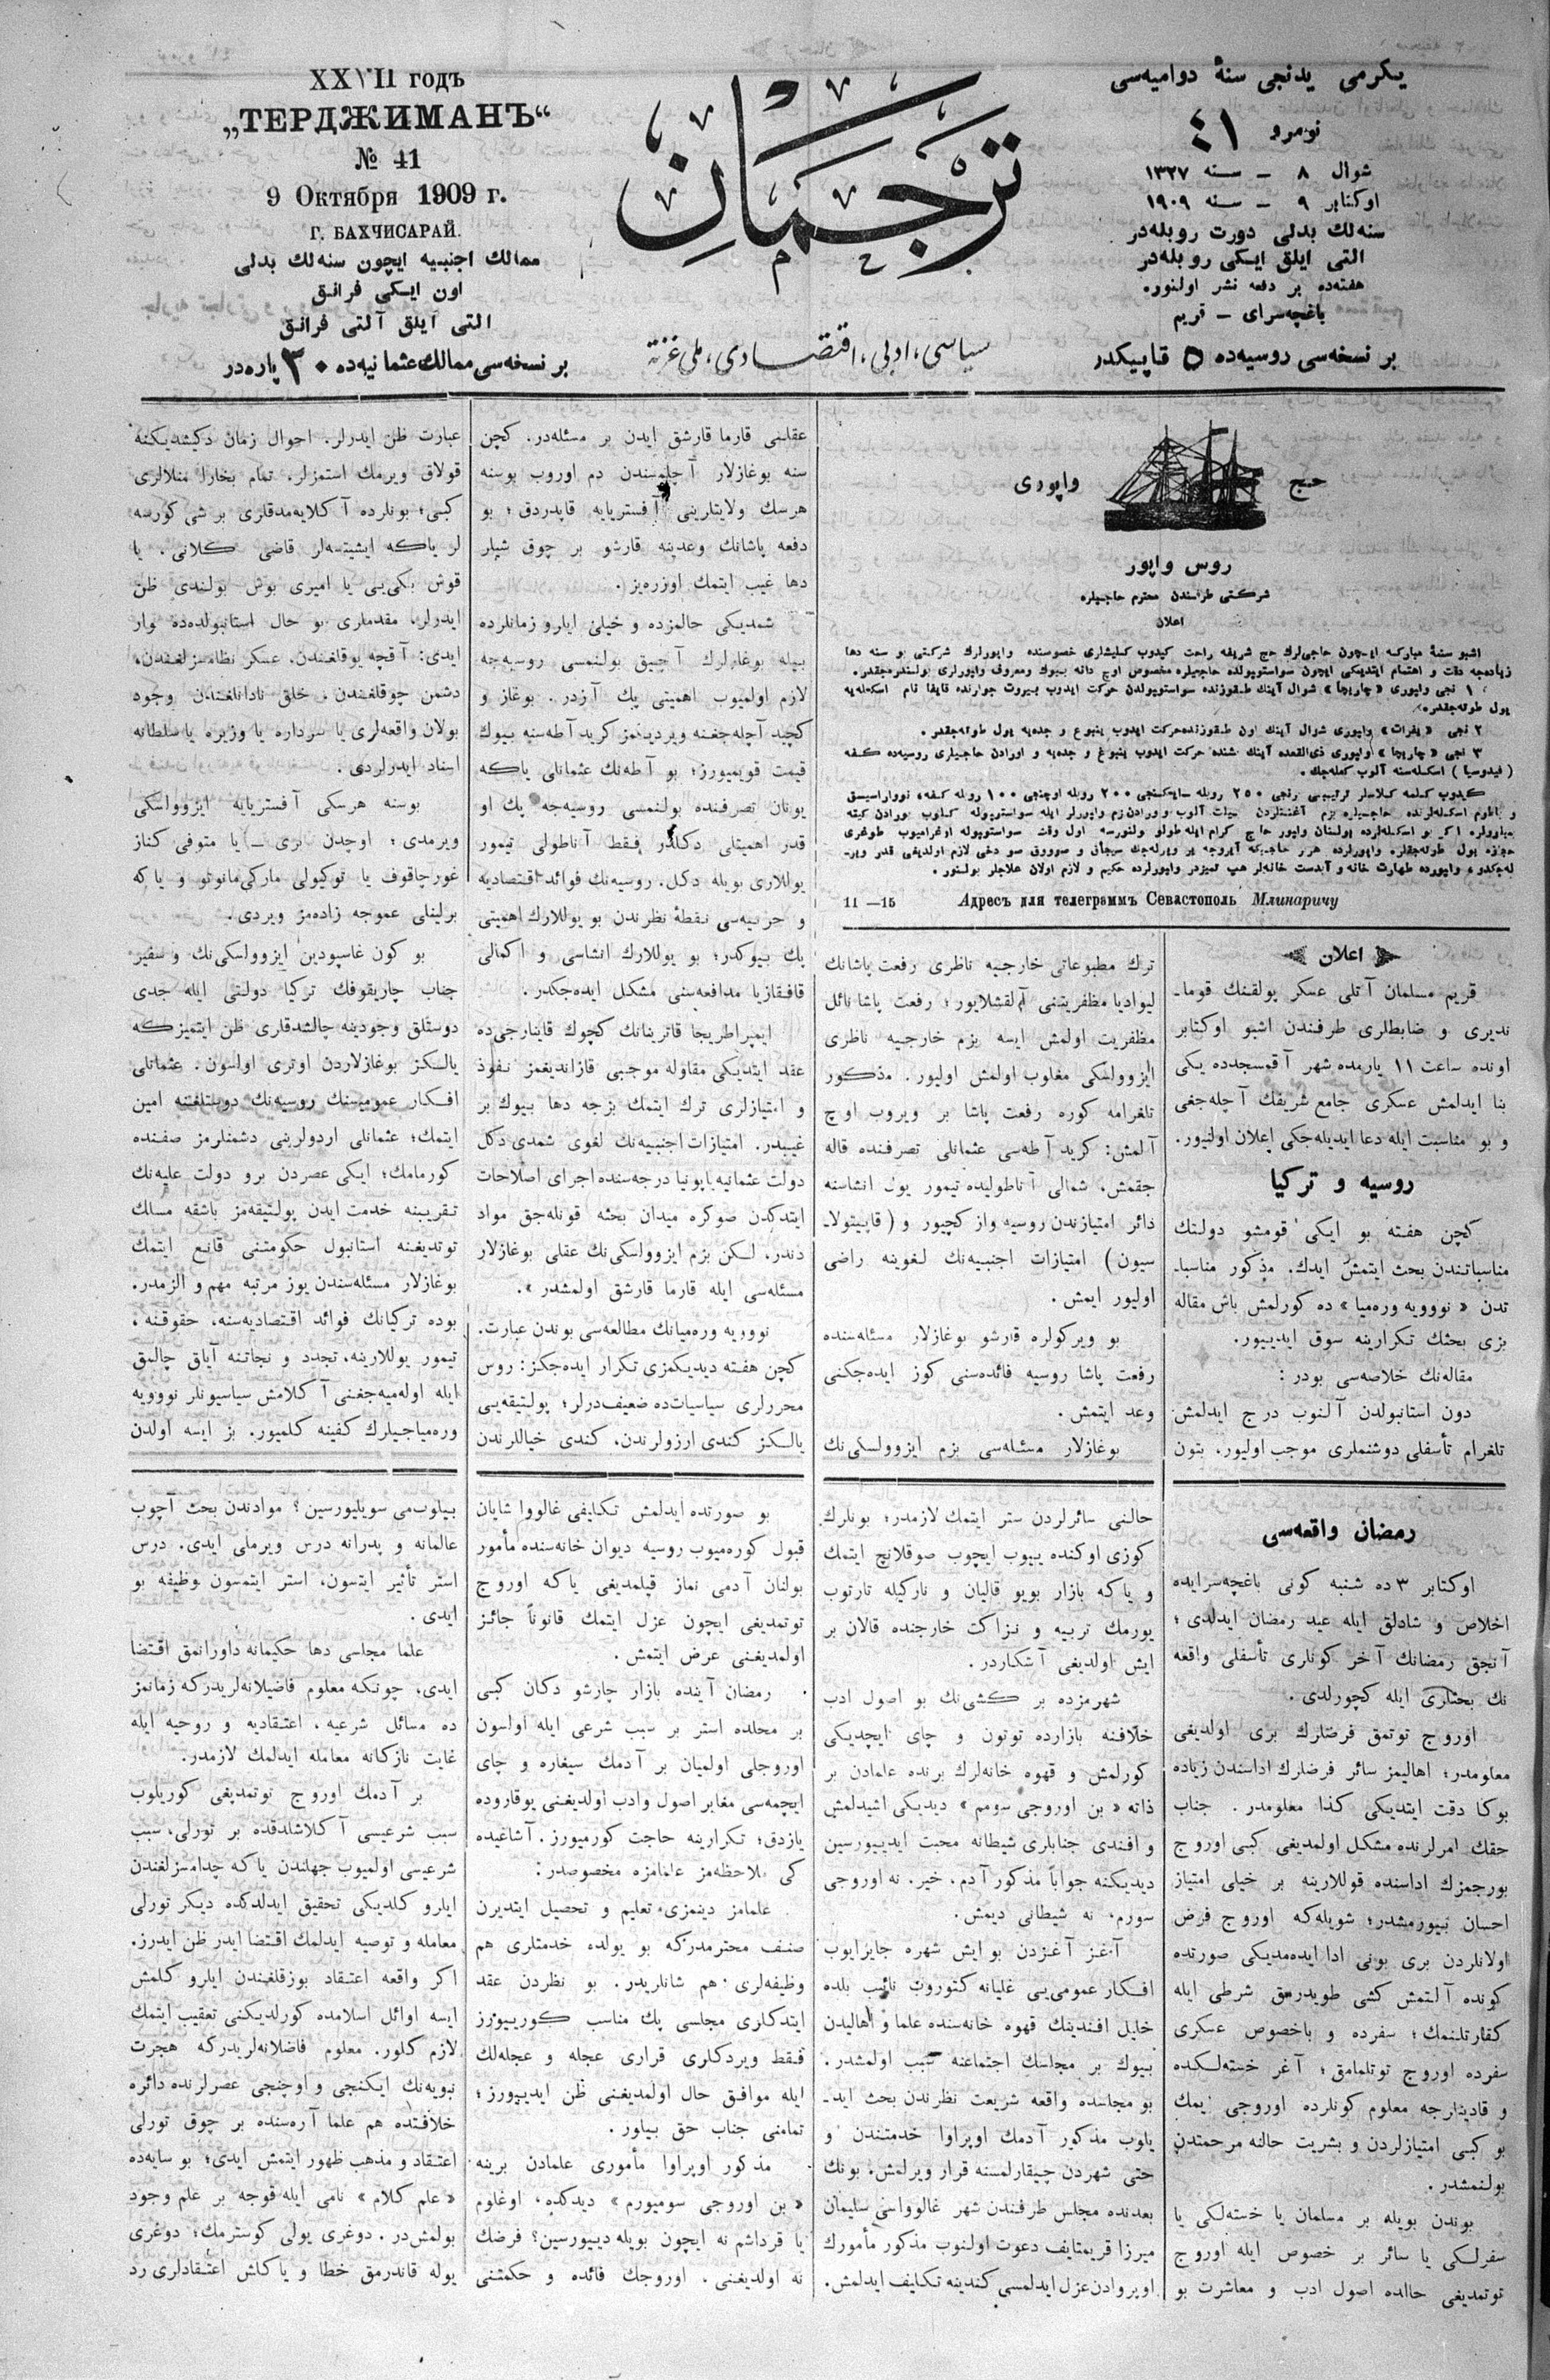 یكرمی یدنجی سنهٔ دوامیه‌سی
نومرو ٤١
شوال ٨ – سنه ١٣٢٧
اوكتابر ٩ – سنه ١٩٠٩
سنه‌لك بدلی دورت روبله‌در
التی ایلق ایكی روبله‌در
هفته‌ده بر دفعه نشر اولنور.
باغچه‌سرای – قریم
بر نسخه‌سی روسیه‌ده ٥ قاپیكدر
ترجمان
سیاسی، ادبی، اقتصادی، ملی غزته
XXVII годъ
„ТЕРДЖИМАНЪ“
№ 41
9 Октября 1909 г.
Г. БАХЧИСАРАЙ.
ممالك اجنبیه ایچون سنه‌لك بدلی
اون ایكی فرانق
التی آیلق آلتی فرانق
بر نسخه‌سی ممالك عثمانیه‌ده ٣٠ پاره‌در
حج واپوری
روس واپور
شركتی طرفندن محترم حاجیلره
اعلان
اشبو سنهٔ مباركه ایچون حاجی‌لرك حج شریفه راحت كیدوب كلیشلری خصوسنده واپورلرك شركتی بو سنه دها
زیاده‌جه دقت و اهتمام ایتدیكی ایچون سواستوپولده حاجیلره مخصوص اوچ دانه بیوك ومعروف واپورلری بولندره‌جقدر.
١ نجی واپوری «چاریچا» شوال آینك طقوزنده سواستوپولدن حركت ایدوب بیروت جوارنده قایفا نام اسكله‌یه
یول طوته‌جقدر.
٢ نجی «یفرات» واپوری شوال آینك اون طقوزنده حركت ایدوب ینبوع و جده‌یه یول طوته‌جقدر.
٣ نجی «چاریچا» واپوری ذی‌القعده آینك شنده حركت ایدوب ینبوع و جده‌یه و اورادن حاجیلری روسیه‌ده كفه
(فیدوسیا) اسكله‌سنه آلوب كله‌جك.
11 —15 Адресъ для телеграммъ Севастополь Млинаричу
اعلان
قریم مسلمان آتلی عسكر پولقنك قوما-
ندیری و ضابطلری طرفندن اشبو اوكتابر
اونده ساعت ١١ یارمده شهر آقمسجدده یكی
بنا ایدلمش عسكری جامع شریفك آچله‌جغی
و بو مناسبت ایله دعا ایدیله‌جكی اعلان اولنیور.
روسیه و تركیا
كچن هفته بو ایكی قومشو دولتك
مناسباتندن بحث ایتمش ایدك. مذكور مناسبا-
تدن «نوویه وره‌میا» ده كورلمش باش مقاله
بزی بحثك تكرارینه سوق ایدییور.
مقاله‌نك خلاصه‌سی بودر:
دون استانبولدن آلنوب درج ایدلمش
تلغرام تأسفلی دوشنملری موجب اولیور، بتون
ترك مطبوعاتی خارجیه ناظری رفعت پاشانك
لیوادیا مظفریتنی آلقشلایور؛ رفعت پاشا نائل
مظفریت اولمش ایسه بزم خارجیه ناظری
ایزوولسكی مغلوب اولمش اولیور. مذكور
تلغرامه كوره رفعت پاشا بر ویروب اوچ
آلمش: كرید آطه‌سی عثمانلی تصرفنده قاله
جقمش، شمالی آناطولیده تیمور یول انشاسنه
دائر امتیازندن روسیه واز كچیور و (قاپیتولا-
سیون) امتیازات اجنبیه‌نك لغوینه راضی
اولیور ایمش.
بو ویركولره قارشو بوغازلار مسئله‌سنده
رفعت پاشا روسیه فائده‌سنی كوز ایده‌جكنی
وعد ایتمش.
بوغازلار مسئله‌سی بزم ایزوولسكی‌نك
عقلنی قارما قارشق ایدن بر مسئله‌در. كچن
سنه بوغازلار آچلمسندن دم اوروب بوسنه
هرسك ولایتلرینی آفستریایه قاپدردق؛ بو
دفعه پاشانك وعدینه قارشو بر چوق شیلر
دها غیب ایتمك اوزره‌یز.
شمدیكی حالمزده و خیلی ایلرو زمانلرده
بیله بوغازلرك آچیق بولنمسی روسیه‌جه
لازم اولمیوب اهمیتی پك آزدر. بوغاز و
كچید آچله‌جغنه ویردیكمز كرید آطه‌سنه بیوك
قیمت قویمیورز؛ بو آطه‌نك عثمانلی یاكه
یونان تصرفنده بولنمسی روسیه‌جه پك او
قدر اهمیتلی دكلدر فقط آناطولی تیمور
یوللاری بویله دكل. روسیه‌نك فوائد اقتصادیه
و حربیه‌سی نقطهٔ نظرندن بو یوللارك اهمیتی
پك بیوكدر؛ بو یوللارك انشاسی و اكمالی
قافقازیا مدافعه‌سنی مشكل ایده‌جكدر.
ایمپراطریجا قاترینانك كچوك قاینارجی‌ده
عقد ایتدیكی مقاوله موجبی قازاندیغمز نفوذ
و امتیازلری ترك ایتمك بزجه دها بیوك بر
غیبدر. امتیازات اجنبیه‌نك لغوی شمدی دكل
دولت عثمانیه یاپونیا درجه‌سنده اجرای اصلاحات
ایتدكدن صوكره میدان بحثه قونله‌جق مواد
دندر، لكن بزم ایزوولسكی‌نك عقلی بوغازلار
مسئله‌سی ایله قارما قارشق اولمشدر».
نوویه وره‌میانك مطالعه‌سی بوندن عبارت.
كچن هفته دیدیكمزی تكرار ایده‌جكز: روس
محررلری سیاسیات‌ده ضعیف‌درلر؛ پولتیقه‌یی
یالكز كندی ارزولرندن، كندی خیاللرندن
عبارت ظن ایدرلر. احوال زمان دكیشدیكنه
قولاق ویرمك استمزلر. تمام بخارا منلالری
كبی؛ بونلرده آكلایه‌مدقلری بر شی كورسه
لر یاكه ایشیتسه‌لر قاضی كلانی. یا
قوش بكی‌یی یا امیری بوش بولندی ظن
ایدرلر، مقدماری بو حال استانبولده‌ده وار
ایدی: آقچه یوقلغندن، عسكر نظامسزلغندن،
دشمن چوقلغندن، خلق نادانلغندن وجود
بولان واقعه‌لری یا سرداره یا وزیره یا سلطانه
اسناد ایدرلردی.
بوسنه هرسكی آفستریایه ایزوولسكی
ویرمدی؛ اوچدن بری – یا متوفی كناز
غورچاقوف یا توكیولی ماركی مانوتو و یاكه
برلینلی عموجه زاده‌مز ویردی.
بو كون غاسپودین ایزوولسكی‌نك و سفیر
جناب چاریقوفك تركیا دولتی ایله جدی
دوستلق وجودینه چالشدقلری ظن ایتمیزكه
یالكز بوغازلاردن اوتری اولسون. عثمانلی
افكار عمومیسنك روسیه‌نك دوستلغنه امین
ایتمك؛ عثمانلی اردولرینی دشمنلرمز صفنده
كورمامك؛ ایكی عصردن برو دولت علیه‌نك
تقریبنه خدمت ایدن پولتیقه‌مز باشقه مسلك
توتدیغنه استانبول حكومتنی قانع ایتمك
بوغازلار مسئله‌سندن یوز مرتبه مهم و الزمدر.
بوده تركیانك فوائد اقتصادیه‌سنه، حقوقنه،
تیمور یوللارینه، تجدد و نجاتنه آیاق چالمق
ایله اوله‌میه‌جغنی آكلامش سیاسیونلر نوویه
وره‌میاجیلرك كفینه كلمیور. بز ایسه اولدن
رمضان واقعه‌سی
اوكتابر ٣ ده شنبه كونی باغچه‌سرایده
اخلاص و شادلق ایله عید رمضان ایدلدی؛
آنجق رمضانك آخر كونلری تأسفلی واقعه
نك بحثلری ایله كچورلدی.
اوروج توتمق فرضلرك بری اولدیغی
معلومدر؛ اهالیمز سائر فرضلرك اداسندن زیاده
بوكا دقت ایتدیكی كذا معلومدر. جناب
حقك امرلرنده مشكل اولمدیغی كبی اوروج
بورجمزك اداسنده قوللارینه بر خیلی امتیاز
احسان بیورمشدر؛ شویله‌كه اوروج فرض
اولانلردن بری بونی ادا ایده‌مدیكی صورتده
كونده آلتمش كشی طویدرمق شرطی ایله
كفارتلنمك؛ سفرده و باخصوص عسكری
سفرده اوروج توتلمامق؛ آغر خسته‌لكده
و قادینلرجه معلوم كونلرده اوروجی یمك
بو كبی امتیازلردن و بشریت حالنه مرحمتدن
بولنمشدر.
بوندن بویله بر مسلمان یا خسته‌لكی یا
سفرلكی یا سائر بر خصوص ایله اوروج
توتمدیغی حالده اصول ادب و معاشرت بو
حالنی سائرلردن ستر ایتمك لازمدر؛ بونلرك
كوزی اوكنده ییوب ایچوب صوقلانچ ایتمك
و یاكه بازار بویو قالیان و ناركیله تارتوب
یورمك تربیه و نزاكت خارجنده قالان بر
ایش اولدیغی آشكاردر.
شهرمزده بر كشی‌نك بو اصول ادب
خلافنه بازارده توتون و چای ایچدیكی
كورلمش و قهوه خانه‌لرك برنده علمادن بر
ذاته «بن اوروجی سوممم» دیدیكی اشیدلمش
و افندی جنابلری شیطانه محبت ایدییورسین
دیدیكنه جواباً مذكور آدم، خیر، نه اوروجی
سورم، نه شیطانی دیمش.
آغز آغزدن بو ایش شهره جایرایوب
افكار عمومی‌یی غلیانه كتوروب نائیب بلده
خلیل افندینك قهوه خانه‌سنده علما و اهالیدن
بیوك بر مجلسك اجتماعنه سبب اولمشدر.
بو مجلسده واقعه شریعت نظرندن بحث اید-
یلوب مذكور آدمك اوپراوا خدمتندن و
حتی شهردن چیقارلمسنه قرار ویرلمش. بونك
بعدنده مجلس طرفندن شهر غالوواسی سلیمان
میرزا قریمتایف دعوت اولنوب مذكور مأمورك
اوپروادن عزل ایدلمسی كندینه تكلیف ایدلمش.
بو صورتده ایدلمش تكلیفی غالووا شایان
قبول كورمیوب روسیه دیوان خانه‌سنده مأمور
بولنان آدمی نماز قیلمدیغی یاكه اوروج
توتمدیغی ایچون عزل ایتمك قانوناً جائز
اولمدیغنی عرض ایتمش.
رمضان آینده بازار چارشو دكان كبی
بر محلده استر بر سبب شرعی ایله اولسون
اوروجلی اولمیان بر آدمك سیغاره و چای
ایچمه‌سی مغایر اصول وادب اولدیغنی یوقاروده
یازدق؛ تكرارینه حاجت كورمیورز. آشاغیده
كی ملاحظه‌مز علمامزه مخصوصدر:
علمامز دینمزی تعلیم و تحصیل ایتدیرن
صنف محترمدركه بو یولده خدمتلری هم
وظیفه‌لری هم شانلریدر. بو نظردن عقد
ایتدكلری مجلسی پك مناسب كورییورز
فقط ویردكلری قراری عجله و عجله‌لك
ایله موافق حال اولمدیغنی ظن ایدییورز؛
تمامنی جناب حق بیلور.
مذكور اوپراوا مأموری علمادن برینه
«بن اوروجی سومیورم» دیدكده، اوغلوم
یا قرداشم نه ایچون بویله دییورسین؟ فرضك
نه اولدیغنی. اوروجك فائده و حكمتنی
بیلوب‌می سویلیورسین؟ موادندن بحث آچوب
عالمانه و پدرانه درس ویرملی ایدی. درس
استر تأثیر ایتسون، استر ایتمسون وظیفه بو
ایدی.
علما مجلسی دها حكیمانه داورانمق اقتضا
ایدی، چونكه معلوم فاضیلانه‌لریدركه زمانمز
ده مسائل شرعیه، اعتقادیه و روحیه ایله
غایت نازكانه معامله ایدلمك لازمدر.
بر آدمك اوروج توتمدیغی كوریلوب
سبب شرعیسی آكلاشلدقده بر تورلی، سبب
شرعیسی اولمیوب جهلندن یاكه چدامسزلغندن
ایلرو كلدیكی تحقیق ایدلدكده دیكر تورلی
معامله و توصیه ایدلمك اقتضا ایدر ظن ایدرز.
اكر واقعه اعتقاد بوزقلغندن ایلرو كلمش
ایسه اوائل اسلامده كورلدیكنی تعقیب ایتمك
لازم كلور. معلوم فاضلانه‌لریدركه هجرت
نبویه‌نك ایكنجی و اوچنجی عصرلرنده دائره
خلافتده هم علما آره‌سنده بر چوق تورلی
اعتقاد و مذهب ظهور ایتمش ایدی؛ بو سایه‌ده
«علم كلام» نامی ایله قوجه بر علم وجود
بولمش‌در. دوغری یولی كوسترمك؛ دوغری
یوله قاندرمق خطا و یاكلش اعتقادلری رد